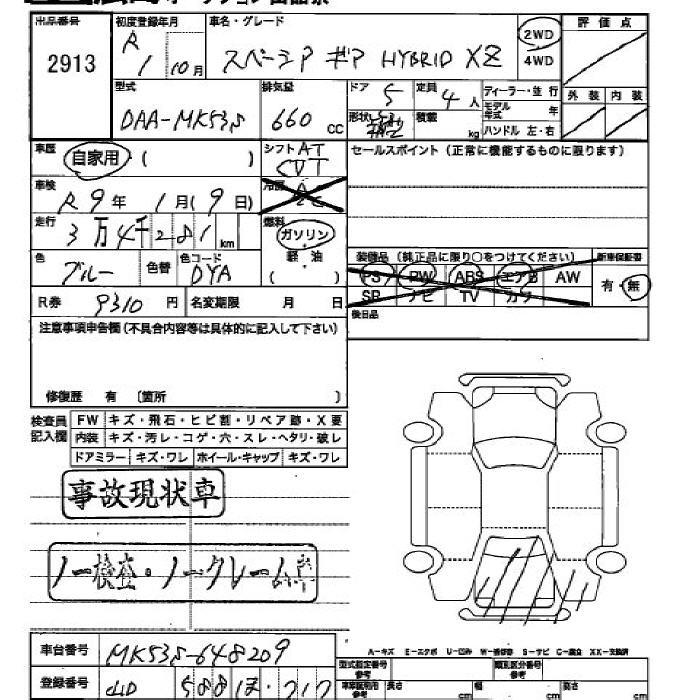 出品番号 初度登録年月 車名・グレード 評価点
2913 R 1 10月 スペーシア ギア HYBRID XZ 2WD 4WD
型式 排気量 ドア 5 定員 4人 ディーラー・並行 外装 内装
DAA-MK53S 660cc 形状 積載 kg モデル年式 年
ハンドル 左・右
車歴 自家用 ( ) シフト AT CVT セールスポイント (正常に機能するものに限ります)
車検 R 9年 1月(9日) 冷房 AC
走行 3万4千281km 燃料 ガソリン 軽油 ( )
装備品 (純正品に限り○をつけてください) 新車保証書
色 ブルー 色替 色コード DYA PS PW ABS エアB AW 有・無
SR ナビ TV カワ
R券 9310円 名変期限 月 日 後日品
注意事項申告欄 (不具合内容等は具体的に記入して下さい)
修復歴 有 〔箇所 〕
検査員記入欄 FW キズ・飛石・ヒビ割・リペア跡・X要
内装 キズ・汚レ・コゲ・穴・スレ・ヘタリ・破レ
ドアミラー キズ・ワレ ホイール・キャップ キズ・ワレ
事故現状車
ノー検査・ノークレーム車
A-キズ E-エクボ U-凹み W-補修跡 S-サビ C-腐食 XX-交換済
車台番号 MK53S-648209 型式指定番号 参考 類別区分番号 参考
登録番号 588 717 車検証利用 参考 長さ cm 幅 cm 高さ cm